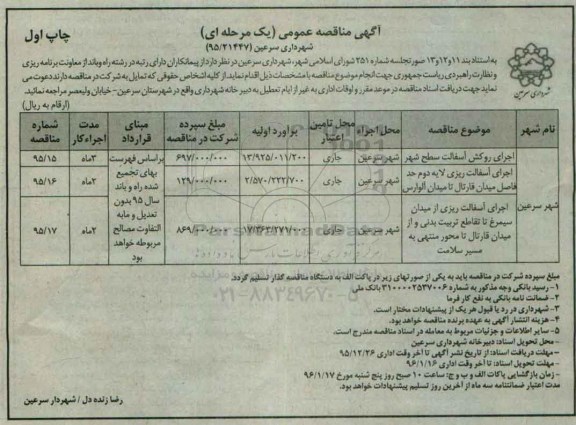 آگهی مناقصه عمومی (یک مرحله ای)
چاپ اول
شهرداری سرعین (۹۵/۲۱۴۴۷)
شهرداری سرعین
به استناد بند ۱۱و۱۲و۱۳ صورتجلسه شماره ۲۵۱ شورای اسلامی شهر، شهرداری سرعین در نظر دارد از پیمانکاران دارای رتبه در رشته راه وباند از معاونت برنامه ریزی
و نظارت راهبردی ریاست جمهوری جهت انجام موضوع مناقصه با مشخصات ذیل اقدام نماید. از کلیه اشخاص حقوقی که تمایل به شرکت در مناقصه دارند دعوت می
نماید جهت دریافت اسناد مناقصه در موعد مقرر و اوقات اداری به غیر از ایام تعطیل به دبیر خانه شهرداری واقع در شهرستان سرعین- خیابان ولیعصر مراجعه نمائید.
(ارقام به ریال)
نام شهر | موضوع مناقصه | محل اجراء | محل تامین اعتبار | برآورد اولیه | مبلغ سپرده شرکت در مناقصه | مبنای قرارداد | مدت اجراء کار | شماره مناقصه
شهر سرعین
اجرای روکش آسفالت سطح شهر | شهر سرعین | جاری | ۱۳/۹۲۵/۰۱۱/۲۰۰ | ۶۹۷/۰۰۰/۰۰۰ | ۳ماه | ۹۵/۱۵
اجرای آسفالت ریزی لایه دوم حد فاصل میدان فارتال تا میدان آلوارس | شهر سرعین | جاری | ۲/۵۷۰/۲۲۲/۷۰۰ | ۱۲۹/۰۰۰/۰۰۰ | ۲ماه | ۹۵/۱۶
اجرای آسفالت ریزی از میدان سیمرغ تا تقاطع تربیت بدنی و از میدان فارتال تا محور منتهی به مسیر سلامت | شهر سرعین | جاری | ۸۶۹/۰۰۰/۰۰۰ | ۲ماه | ۹۵/۱۷
براساس فهرست بهای تجمیع شده راه و باند سال ۹۵ بدون تعدیل و مابه التفاوت مصالح مربوطه خواهد بود
مبلغ سپرده شرکت در مناقصه باید به یکی از صورتهای زیر در پاکت الف به دستگاه مناقصه گذار تسلیم گردد.
۱- رسید بانکی وجه مذکور به شماره ۳۱۰۰۰۰۲۵۳۷۰۰۶ بانک ملی
۲- ضمانت نامه بانکی به نفع کار فرما
۳- شهرداری در رد یا قبول هر یک از پیشنهادات مختار است.
۴- هزینه انتشار آگهی به عهده برنده مناقصه خواهد بود.
۵- سایر اطلاعات و جزئیات مربوط به معامله در اسناد مناقصه مندرج است.
- محل تحویل اسناد: دبیرخانه شهرداری سرعین
- مهلت دریافت اسناد: از تاریخ نشر آگهی تا آخر وقت اداری ۹۵/۱۲/۲۶
- مهلت تحویل اسناد: تا آخر وقت اداری ۹۶/۱/۱۶
- زمان بازگشایی پاکات الف و ب و ج: ساعت ۱۰ صبح روز پنج شنبه مورخ ۹۶/۱/۱۷
مدت اعتبار ضمانتنامه سه ماه از آخرین روز تسلیم پیشنهادات خواهد بود.
رضا زنده دل / شهردار سرعین
۰۲۱-۸۸۳۴۹۶۷۰-۵